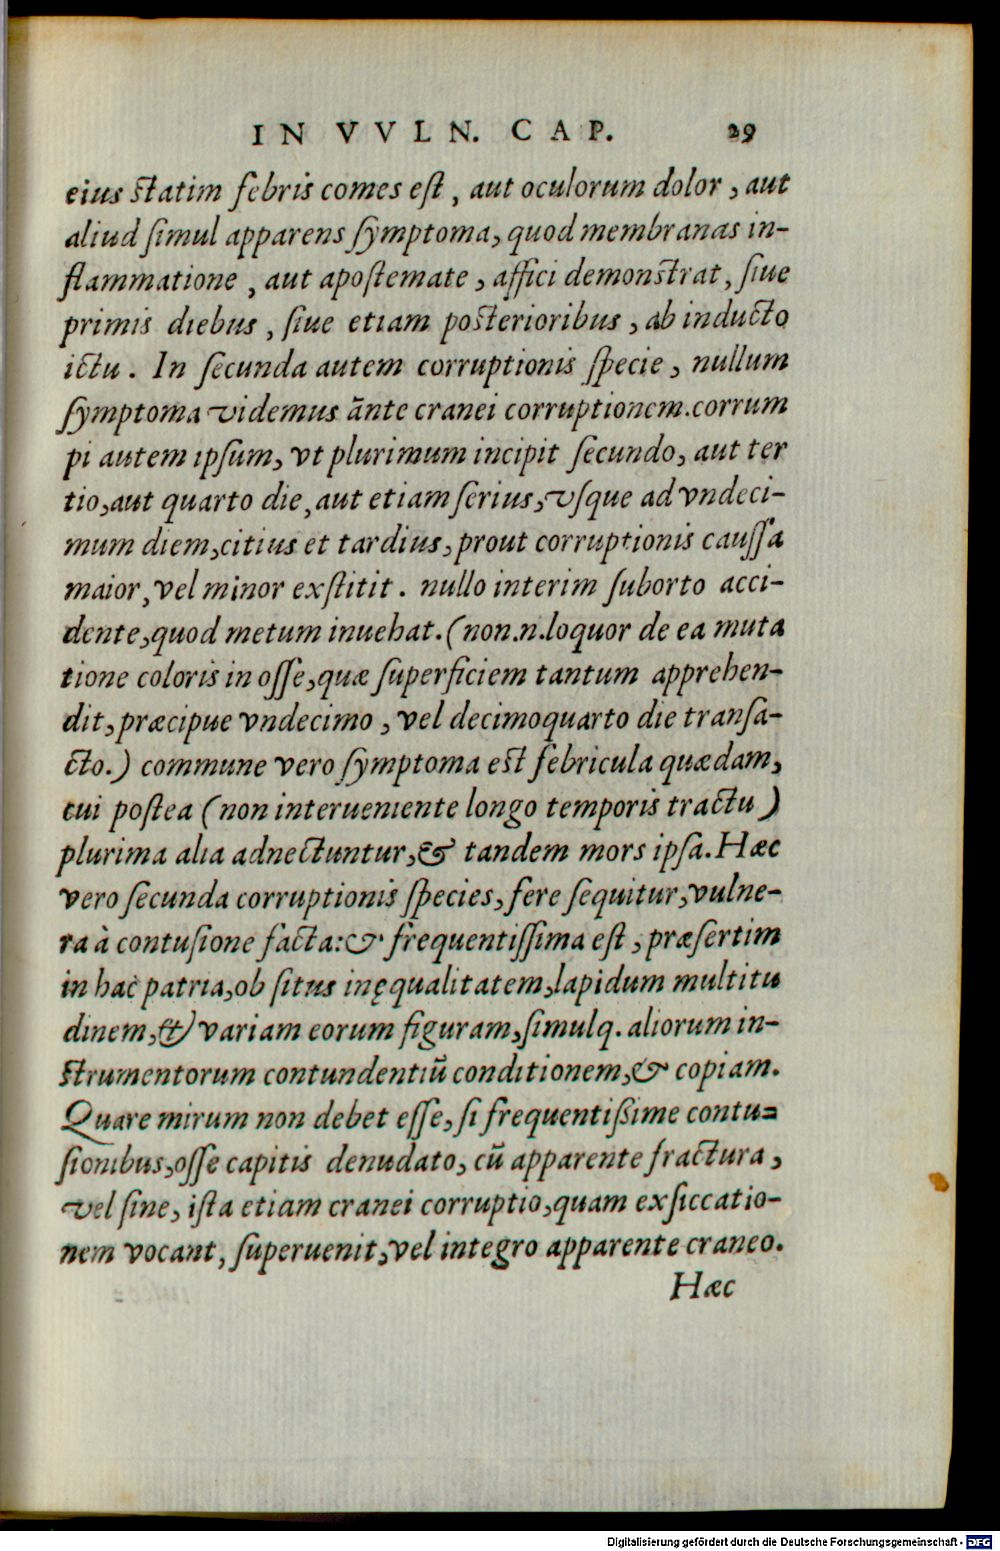 IN VVLN. CAP. 29
eius statim febris comes est, aut oculorum dolor, aut
aliud simul apparens symptoma, quod membranas in-
flammatione, aut apostemate, affici demonstrat, siue
primis diebus, siue etiam posterioribus, ab inducto
ictu. In secunda autem corruptionis specie, nullum
symptoma videmus ante cranei corruptionem. corrum
pi autem ipsum, vt plurimum incipit secundo, aut ter
tio, aut quarto die, aut etiam serius, vsque ad vndeci-
mum diem, citius et tardius, prout corruptionis caussa
maior, vel minor exstitit. nullo interim suborto acci-
dente, quod metum inuehat. (non.n.loquor de ea muta
tione coloris in osse, quæ superficiem tantum apprehen-
dit, præcipue vndecimo, vel decimoquarto die transa-
cto.) commune vero symptoma est febricula quædam,
cui postea (non interueniente longo temporis tractu)
plurima alia adnectuntur, & tandem mors ipsa. Hæc
vero secunda corruptionis species, fere sequitur, vulne-
ra à contusione facta: & frequentissima est, præsertim
in hac patria, ob situs inęqualitatem, lapidum multitu
dinem, & variam eorum figuram, simulq. aliorum in-
strumentorum contundentiū conditionem, & copiam.
Quare mirum non debet esse, si frequentißime contu-
sionibus, osse capitis denudato, cū apparente fractura,
vel sine, ista etiam cranei corruptio, quam exsiccatio-
nem vocant, superuenit, vel integro apparente craneo.
Hæc
Digitalisierung gefördert durch die Deutsche Forschungsgemeinschaft - DFG